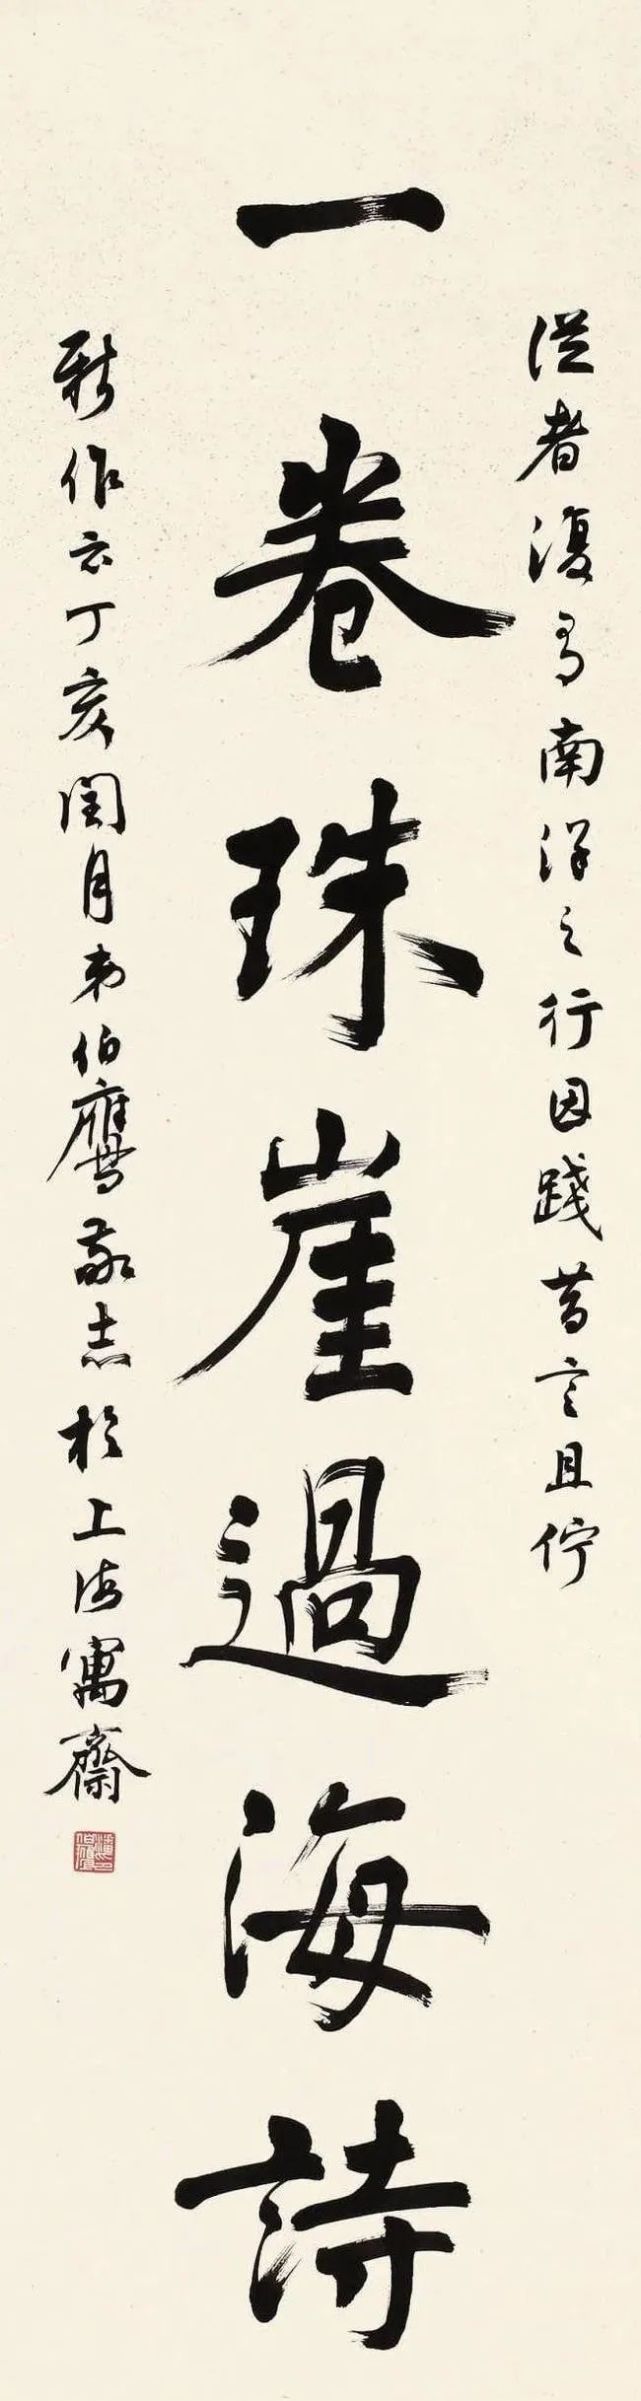 從者復有南洋之行因踐昔言且佇
一卷珠崖過海詩
新作云丁亥閏月弟伯鷹敬志於上海寓齋